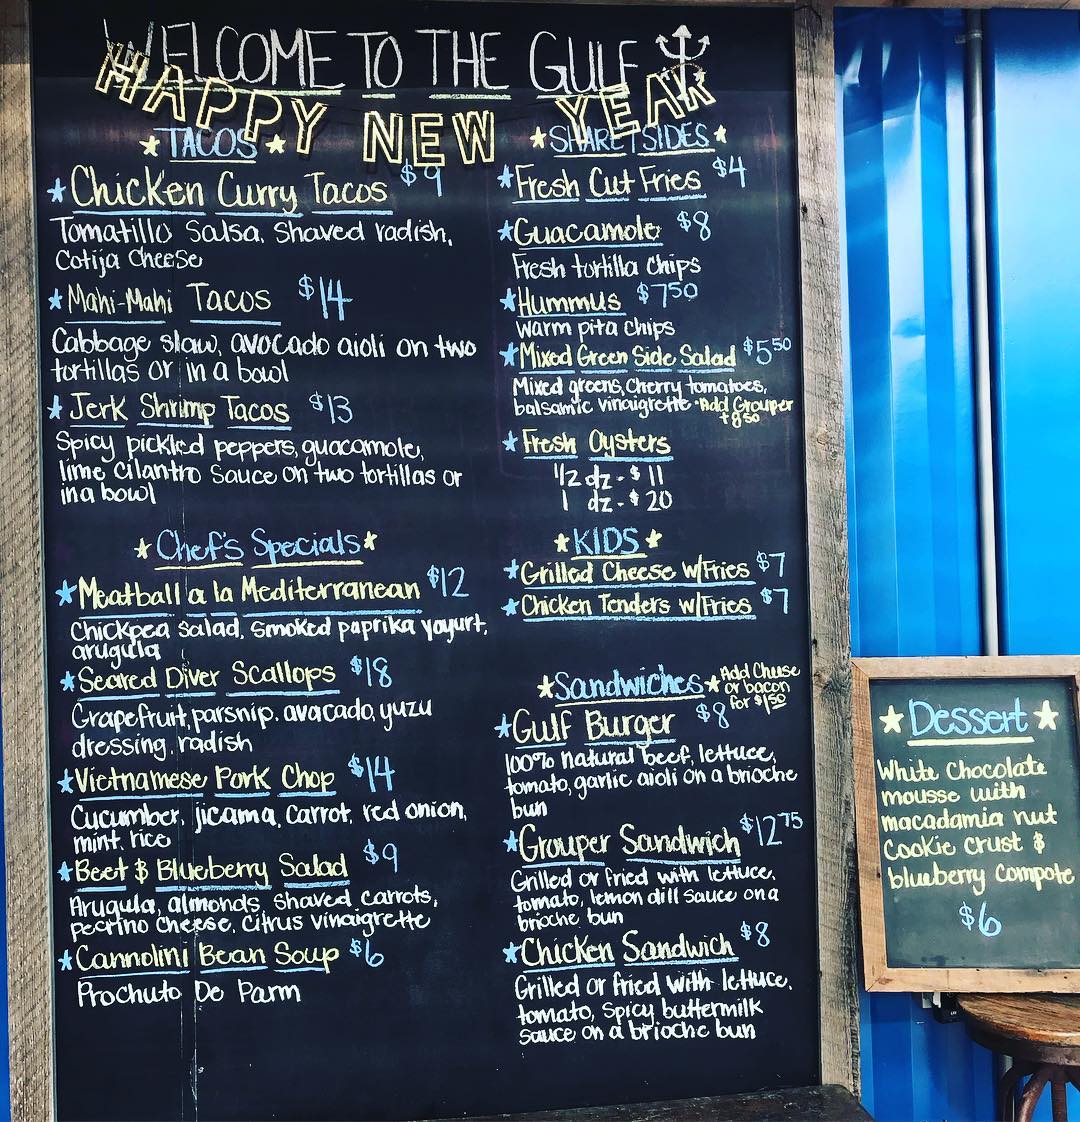 WELCOME TO THE GULF
HAPPY NEW YEAR
TACOS
Chicken Curry Tacos $9
Tomatillo Salsa, Shaved radish,
Cotija Cheese
Mahi-Mahi Tacos $14
Cabbage slaw, avocado aioli on two
tortillas or in a bowl
Jerk Shrimp Tacos $13
Spicy pickled peppers, guacamole,
lime cilantro sauce on two tortillas or
in a bowl
Chef's Specials
Meatball a la Mediterranean $12
Chickpea Salad, smoked paprika yogurt,
arugula
Seared Diver Scallops $18
Grapefruit, parsnip, avacado, yuzu
dressing, radish
Vietnamese Pork Chop $14
Cucumber, jicama, carrot, red onion,
mint, rice
Beet & Blueberry Salad $9
Arugula, almonds, shaved carrots,
pecrino cheese, citrus vinaigrette
Cannolini Bean Soup $6
Prochuto De Parm
SHARE + SIDES
Fresh Cut Fries $4
Guacamole $8
Fresh tortilla chips
Hummus $7.50
Warm pita chips
Mixed Green Side Salad $5.50
Mixed greens, Cherry tomatoes,
balsamic vinaigrette *Add Grouper
+8.50
Fresh Oysters
1/2 dz - $11
1 dz - $20
KIDS
Grilled Cheese w/Fries $7
Chicken Tenders w/Fries $7
Sandwiches
Add Cheese
or bacon
for $1.50
Gulf Burger $8
100% natural beef, lettuce,
tomato, garlic aioli on a brioche
bun
Grouper Sandwich $12.75
Grilled or fried with lettuce,
tomato, lemon dill sauce on a
brioche bun
Chicken Sandwich $8
Grilled or fried with lettuce,
tomato, spicy buttermilk
sauce on a brioche bun
Dessert
White Chocolate
mousse with
macadamia nut
cookie crust &
blueberry compote
$6